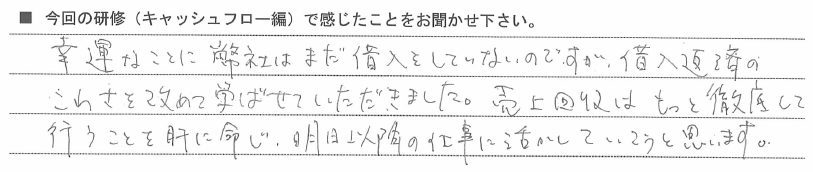 ■ 今回の研修（キャッシュフロー編）で感じたことをお聞かせ下さい。
幸運なことに弊社はまだ借入をしていないのですが、借入返済の
こわさを改めて学ばせていただきました。売上回収はもっと徹底して
行うことを肝に命じ、明日以降の仕事に活かしていこうと思います。